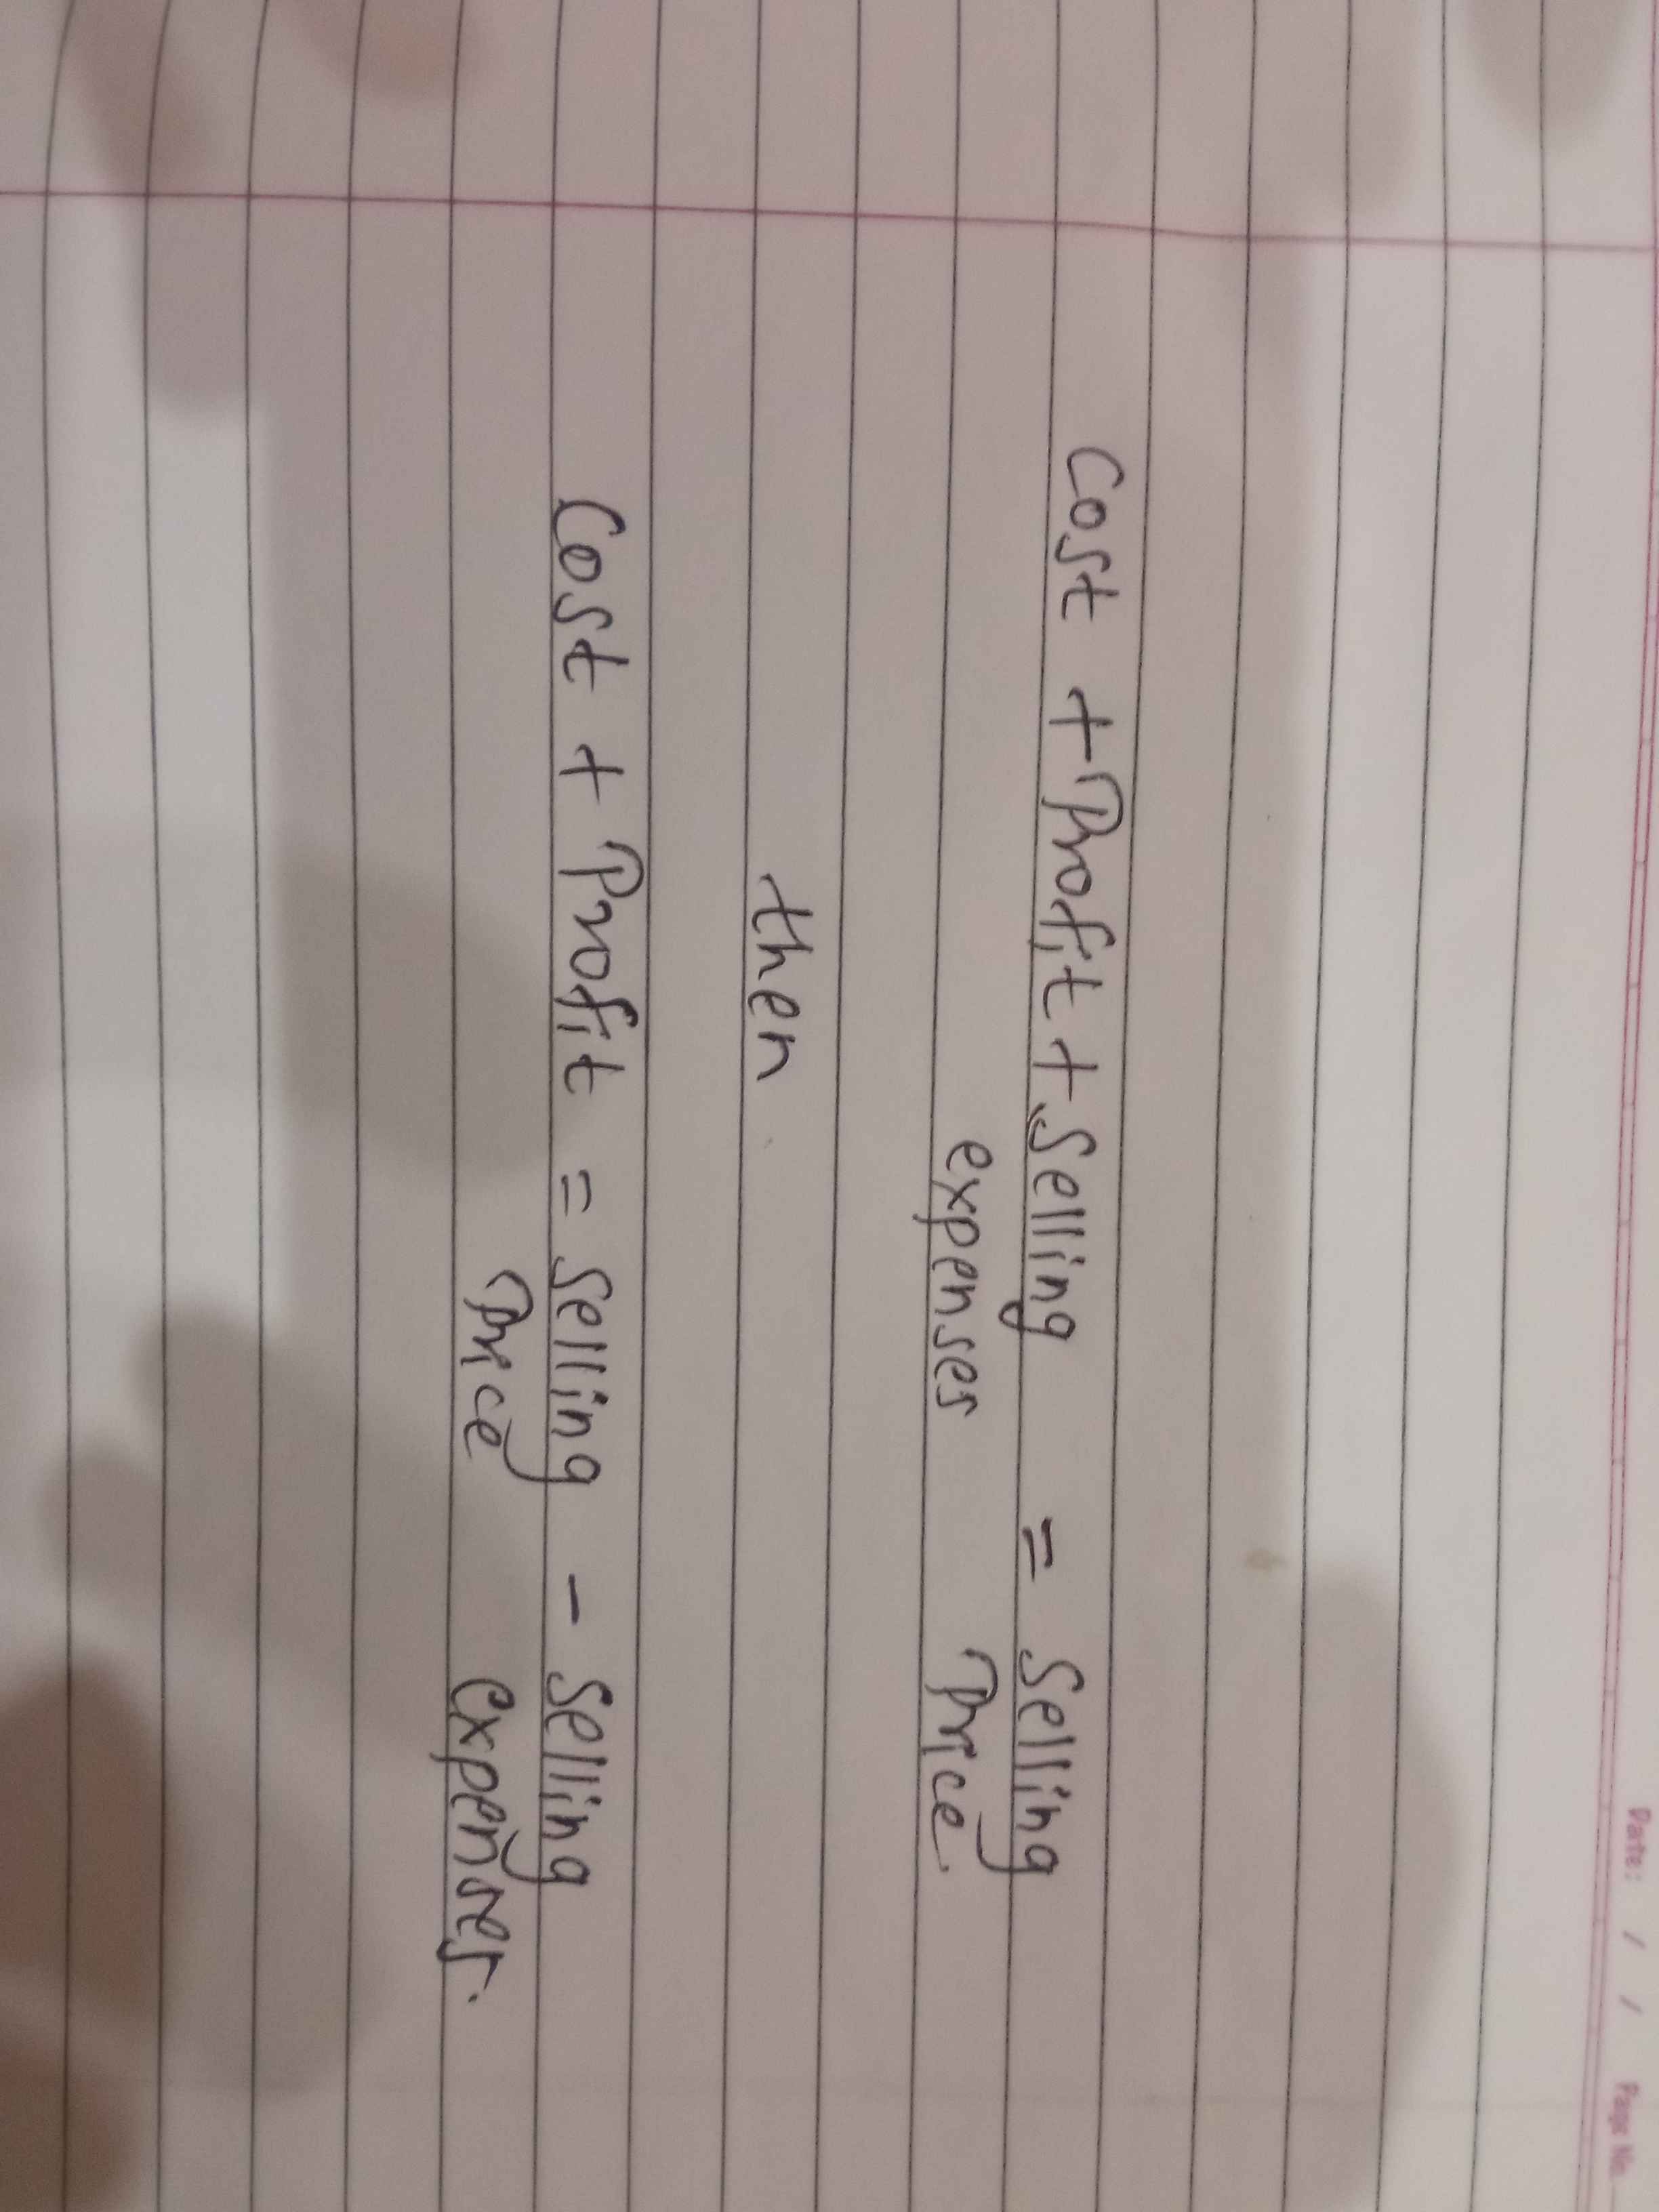 Date: / / Page No.
Cost + Profit + Selling = Selling
expenses Price.
then
Cost + Profit = Selling - Selling
Price expenses.